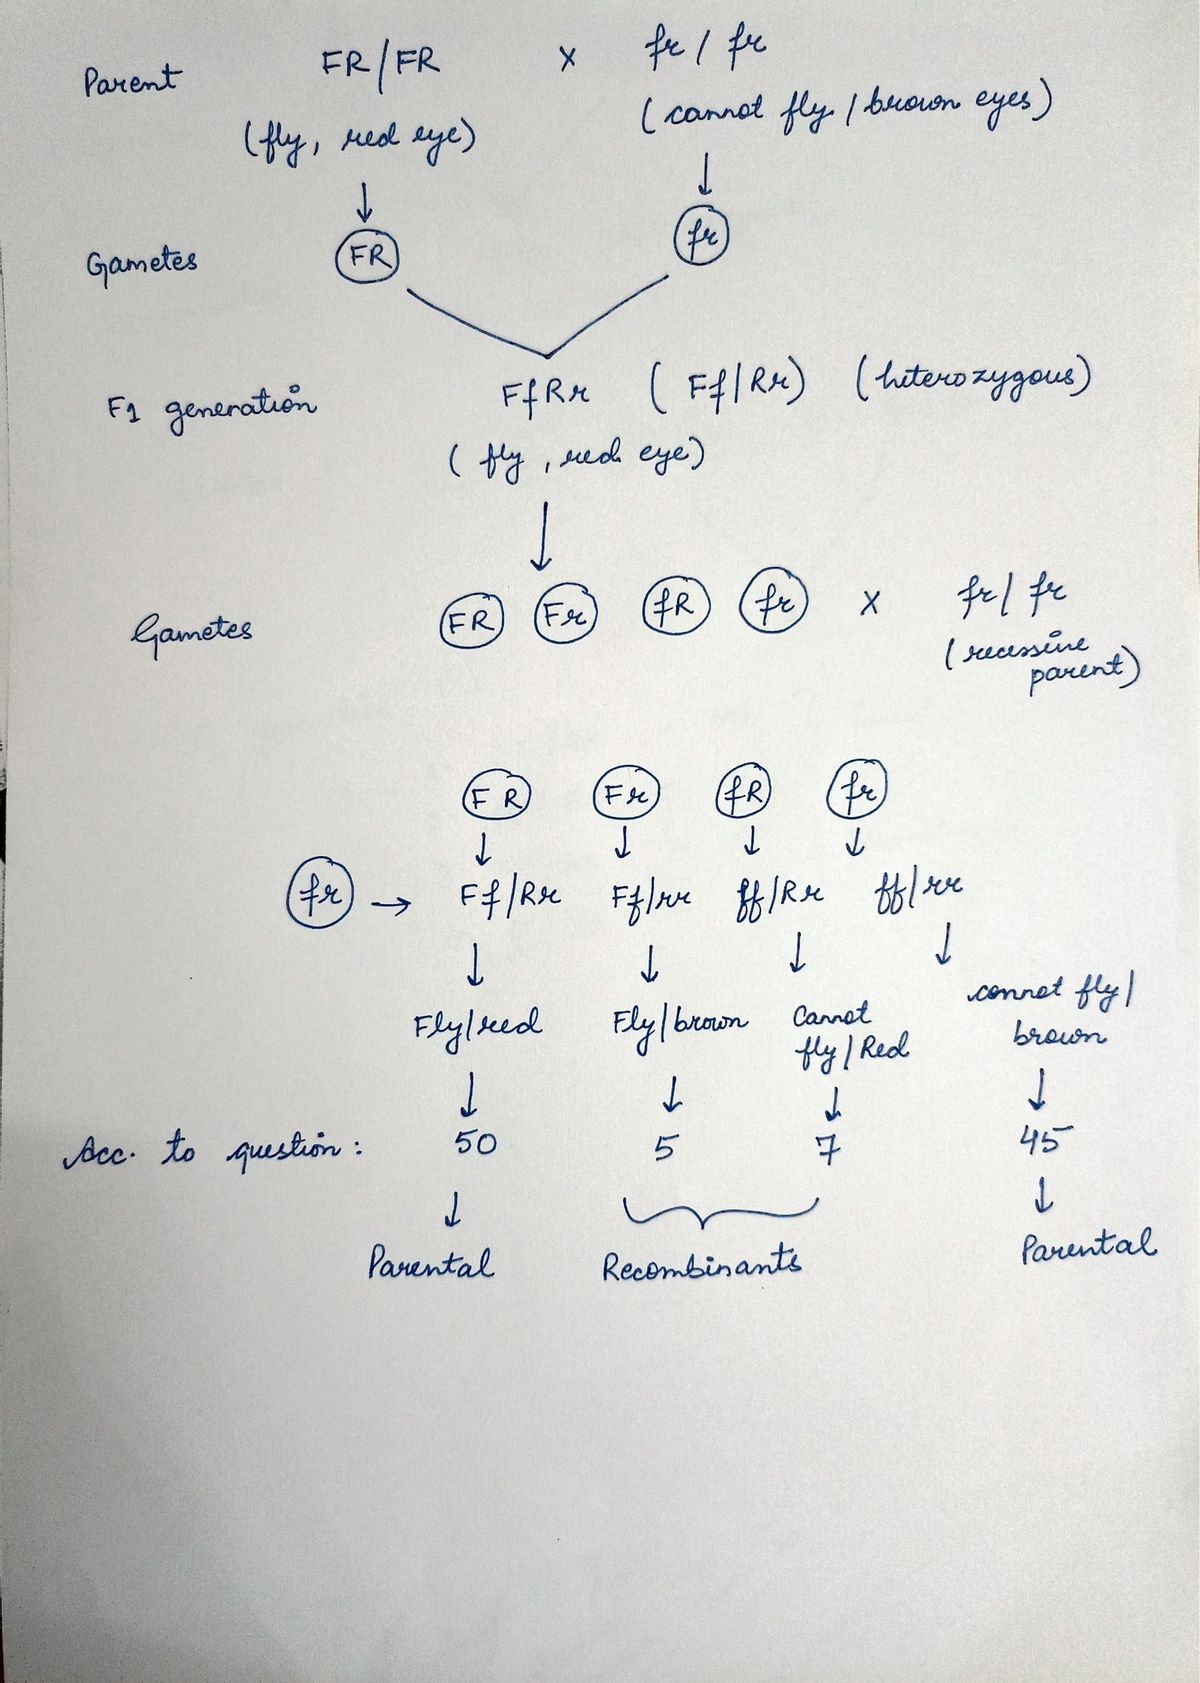 Parent FR/FR x fr / fr
(fly, red eye) (cannot fly / brown eyes)
↓ ↓
Gametes FR fr
F1 generation FfRr (Ff/Rr) (heterozygous)
(fly, red eye)
↓
Gametes FR Fr fR fr x fr/ fr
(recessive
parent)
FR Fr fR fr
↓ ↓ ↓ ↓
fr → Ff/Rr Ff/rr ff/Rr ff/rr
↓ ↓ ↓ ↓
Fly/red Fly/brown Cannot fly/Red cannot fly/ brown
↓ ↓ ↓ ↓
Acc. to question: 50 5 7 45
↓ ↓
Parental Recombinants Parental